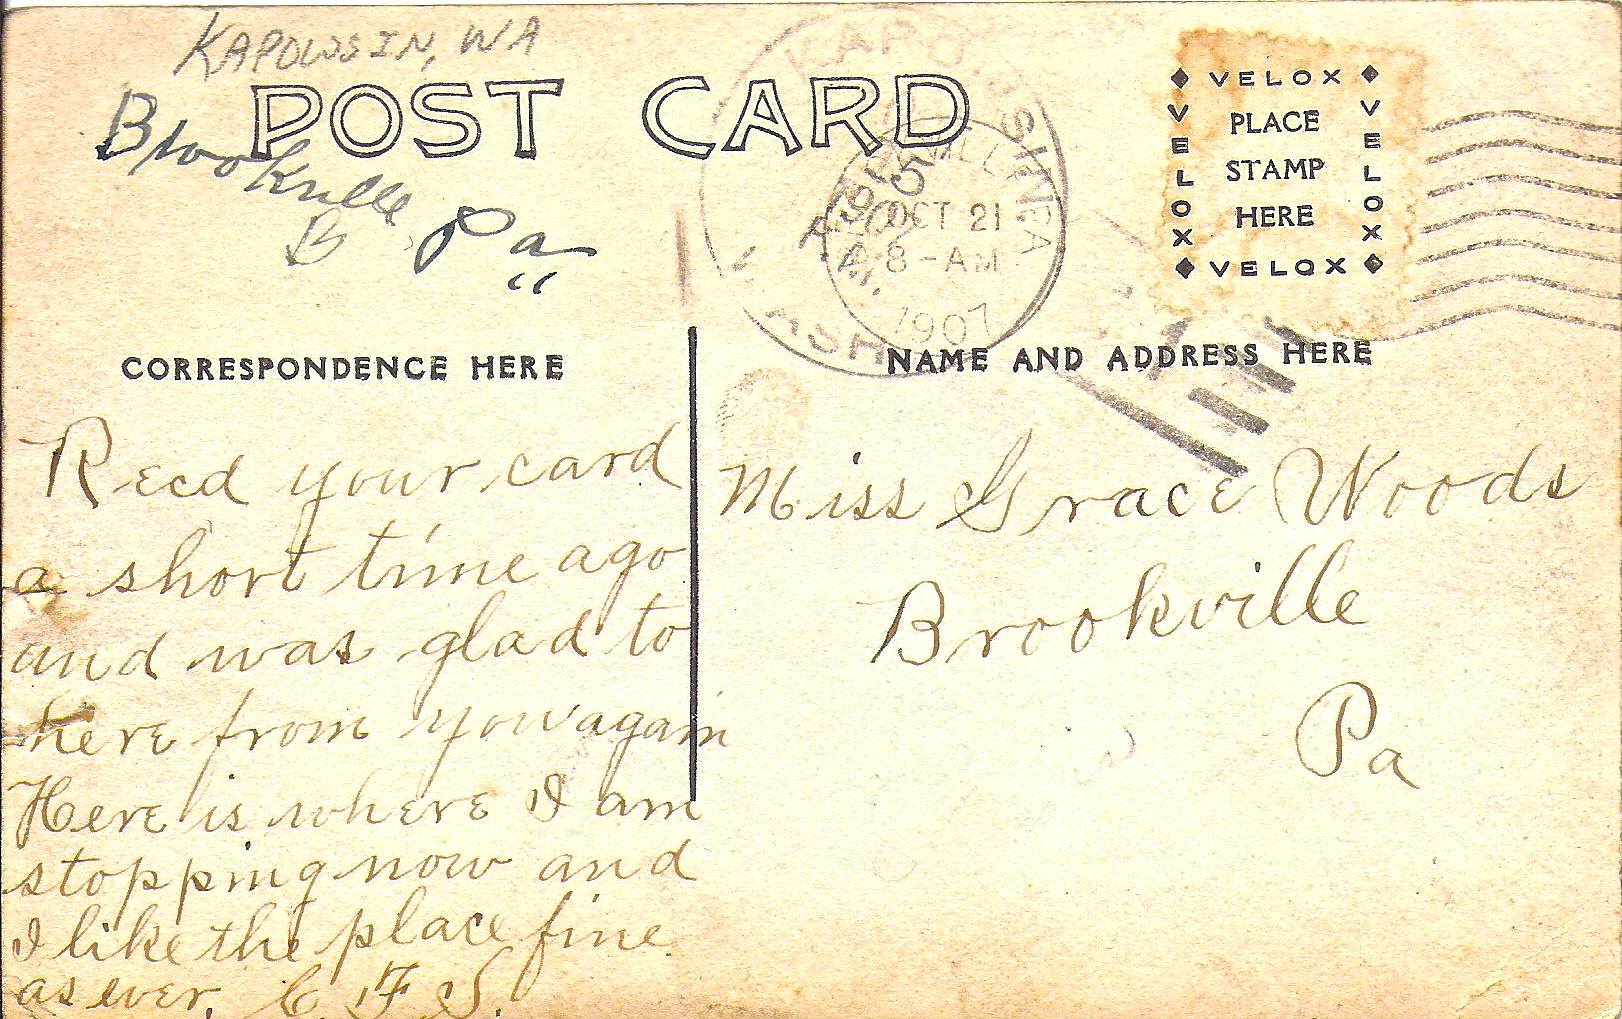 KAPOWSIN, WA
POST CARD
Brookville
B Pa
VELOX
VELOX
PLACE
STAMP
HERE
VELOX
VELOX
KAPOWSIN
WASH
OCT 21
8-AM
1907
PA
CORRESPONDENCE HERE
NAME AND ADDRESS HERE
Recd your card
a short time ago
and was glad to
here from you again
Here is where I am
stopping now and
I like the place fine
as ever. C. F. S.
Miss Grace Woods
Brookville
Pa